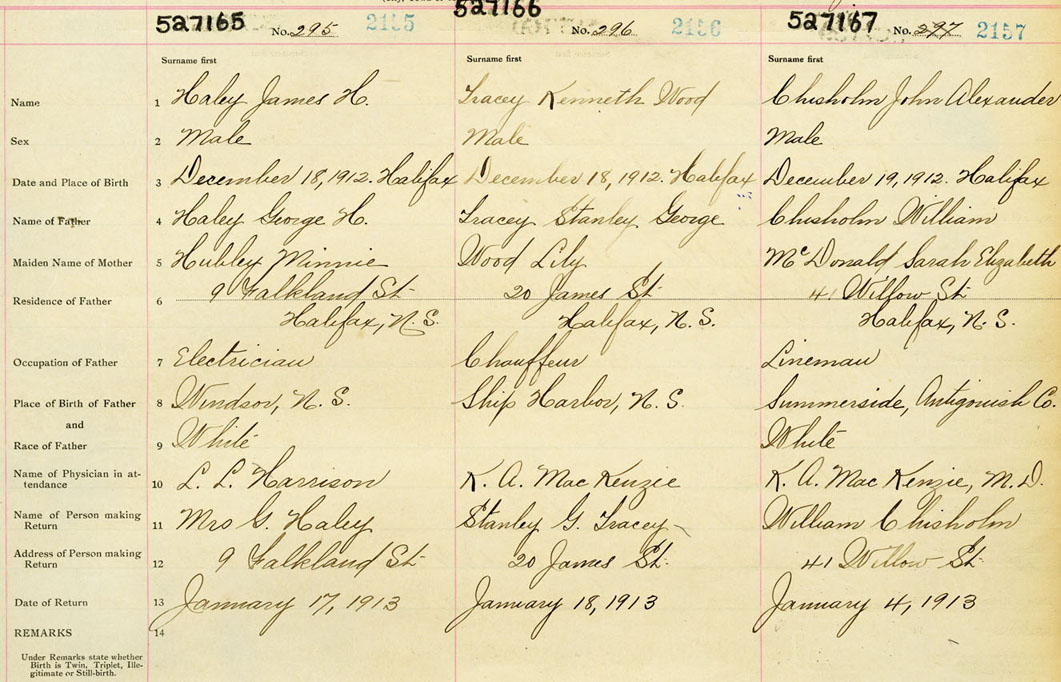 527165 527166 527167
No. 295 2155 No. 296 2156 No. 297 2157
Surname first Surname first Surname first
Name 1 Haley James H. Tracey Kenneth Wood Chisholm John Alexander
Sex 2 Male Male Male
Date and Place of Birth 3 December 18, 1912. Halifax December 18, 1912. Halifax December 19, 1912. Halifax
Name of Father 4 Haley George H. Tracey Stanley George Chisholm William
Maiden Name of Mother 5 Hubley Minnie Wood Lily McDonald Sarah Elizabeth
Residence of Father 6 9 Falkland St 20 James St 41 Willow St
Halifax, N.S. Halifax, N.S. Halifax, N.S.
Occupation of Father 7 Electrician Chauffeur Lineman
Place of Birth of Father 8 Windsor, N.S. Ship Harbor, N.S. Summerside, Antigonish Co.
and
Race of Father 9 White White
Name of Physician in at-
tendance 10 L. L. Harrison K. A. MacKenzie K. A. MacKenzie, M.D.
Name of Person making
Return 11 Mrs G. Haley Stanley G. Tracey William Chisholm
Address of Person making
Return 12 9 Falkland St 20 James St. 41 Willow St
Date of Return 13 January 17, 1913 January 18, 1913 January 4, 1913
REMARKS 14
Under Remarks state whether
Birth is Twin, Triplet, Ille-
gitimate or Still-birth.